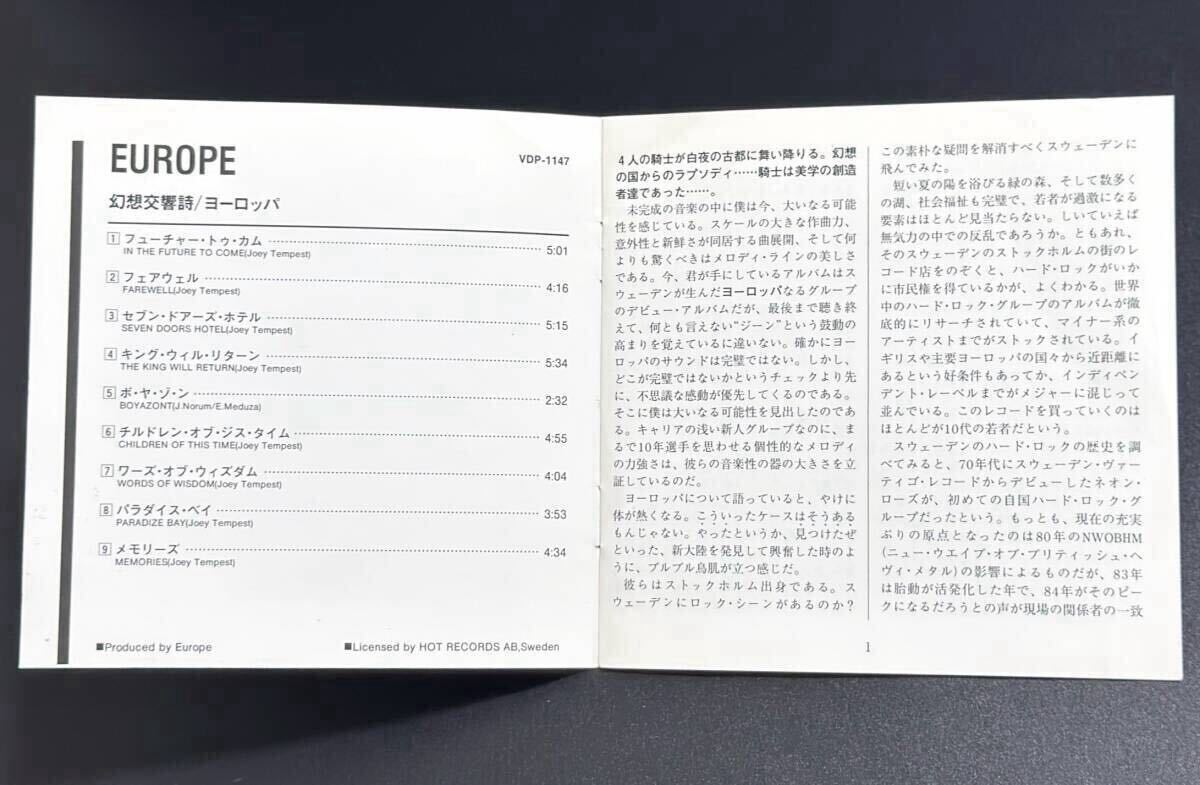 EUROPE
VDP-1147
幻想交響詩/ヨーロッパ
1 フューチャー・トゥ・カム
IN THE FUTURE TO COME(Joey Tempest) 5:01
2 フェアウェル
FAREWELL(Joey Tempest) 4:16
3 セブン・ドアーズ・ホテル
SEVEN DOORS HOTEL(Joey Tempest) 5:15
4 キング・ウィル・リターン
THE KING WILL RETURN(Joey Tempest) 5:34
5 ボ・ヤ・ゾ・ン
BOYAZONT(J.Norum/E.Meduza) 2:32
6 チルドレン・オブ・ジス・タイム
CHILDREN OF THIS TIME(Joey Tempest) 4:55
7 ワーズ・オブ・ウィズダム
WORDS OF WISDOM(Joey Tempest) 4:04
8 パラダイス・ベイ
PARADIZE BAY(Joey Tempest) 3:53
9 メモリーズ
MEMORIES(Joey Tempest) 4:34
■Produced by Europe
■Licensed by HOT RECORDS AB,Sweden
4人の騎士が白夜の古都に舞い降りる。幻想
の国からのラプソディ……騎士は美学の創造
者達であった……。
未完成の音楽の中に僕は今、大いなる可能
性を感じている。スケールの大きな作曲力、
意外性と新鮮さが同居する曲展開、そして何
よりも驚くべきはメロディ・ラインの美しさ
である。今、君が手にしているアルバムはス
ウェーデンが生んだヨーロッパなるグループ
のデビュー・アルバムだが、最後まで聴き終
えて、何とも言えない“ジーン”という鼓動の
高まりを覚えているに違いない。確かにヨー
ロッパのサウンドは完璧ではない。しかし、
どこが完璧ではないかというチェックより先
に、不思議な感動が優先してくるのである。
そこに僕は大いなる可能性を見出したのであ
る。キャリアの浅い新人グループなのに、ま
るで10年選手を思わせる個性的なメロディ
の力強さは、彼らの音楽性の器の大きさを立
証しているのだ。
ヨーロッパについて語っていると、やけに
体が熱くなる。こういったケースはそうある
もんじゃない。やったというか、見つけたぜ
といった、新大陸を発見して興奮した時のよ
うに、ブルブル鳥肌が立つ感じだ。
彼らはストックホルム出身である。ス
ウェーデンにロック・シーンがあるのか?
この素朴な疑問を解消すべくスウェーデンに
飛んでみた。
短い夏の陽を浴びる緑の森、そして数多く
の湖、社会福祉も完璧で、若者が過激になる
要素はほとんど見当たらない。しいていえば
無気力の中での反乱であろうか。ともあれ、
そのスウェーデンのストックホルムの街のレ
コード店をのぞくと、ハード・ロックがいか
に市民権を得ているかが、よくわかる。世界
中のハード・ロック・グループのアルバムが徹
底的にリサーチされていて、マイナー系の
アーティストまでがストックされている。イ
ギリスや主要ヨーロッパの国々から近距離に
あるという好条件もあってか、インディペン
デント・レーベルまでがメジャーに混じって
並んでいる。このレコードを買っていくのは
ほとんどが10代の若者だという。
スウェーデンのハード・ロックの歴史を調
べてみると、70年代にスウェーデン・ヴァー
ティゴ・レコードからデビューしたネオン・
ローズが、初めての自国ハード・ロック・グ
ループだったという。もっとも、現在の充実
ぶりの原点となったのは80年のNWOBHM
(ニュー・ウエイブ・オブ・ブリティッシュ・ヘ
ヴィ・メタル)の影響によるものだが、83年
は胎動が活発化した年で、84年がそのピー
クになるだろうとの声が現場の関係者の一致
1